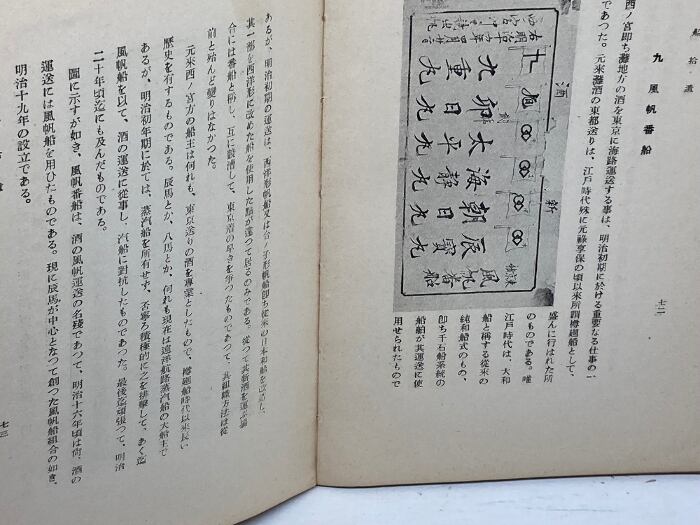 船拾遺
七二
九 風帆番船
西ノ宮即ち灘地方の酒を東京に海路運送する事は、明治初期に於ける重要なる仕事の一
であつた。元来灘酒の東都送りは、江戸時代殊に元祿享保の頃以来所謂樽廻船として、
盛んに行はれた所
のものである。唯
江戸時代は、大和
船と称する従来の
純和船式のもの、
即ち千石船系統の
船舶が其運送に使
用せられたもので
新
酒
風帆番船
辰寳丸
朝日丸
海静丸
太平丸
卯日丸
九重丸
あるが、明治初期の運送は、西洋形帆船又は合ノ子形帆船即ち従来の日本和船を改造し、
其一部を西洋形に改めた船を使用した點が違つて居るのみである。従つて其新酒を運ぶ場
合には番船と称し、互に鼓漕して、東京着の早きを争つたものであつて、其組織方法は従
前と殆んど變りはなかつた。
元来西ノ宮方の船主は何れも、東京送りの酒を専業としたもので、樽廻船時代以来長い
歴史を有するものである。辰馬とか、八馬とか、何れも現在は遠洋航路蒸汽船の大船主で
あるが、明治初年期に於ては、蒸汽船を所有せず、否寧ろ積極的に之を排撃して、あく迄
風帆船を以て、酒の運送に従事し、汽船に對抗したものであつた。最後迄頑張つて、明治
二十年頃迄にも及んだものである。
圖に示すが如き、風帆番船は、酒の風帆運送の名殘であつて、明治十六年頃は尚、酒の
運送には風帆船を用ひたものである。現に辰馬が中心となつて創つた風帆船組合の如き、
明治十九年の設立である。
七三